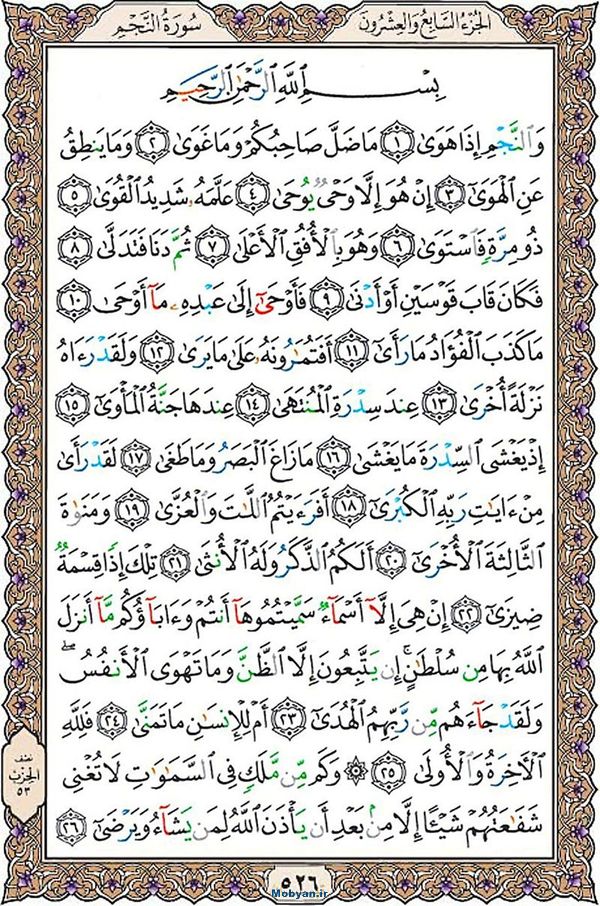 سُورَةُ النَّجْمِ
الجُزْءُ السَّابِعُ وَالعِشْرُونَ
بِسْمِ اللَّهِ الرَّحْمَٰنِ الرَّحِيمِ
وَالنَّجْمِ إِذَا هَوَىٰ ١ مَا ضَلَّ صَاحِبُكُمْ وَمَا غَوَىٰ ٢ وَمَا يَنطِقُ
عَنِ الْهَوَىٰ ٣ إِنْ هُوَ إِلَّا وَحْيٌ يُوحَىٰ ٤ عَلَّمَهُۥ شَدِيدُ الْقُوَىٰ ٥
ذُو مِرَّةٍ فَاسْتَوَىٰ ٦ وَهُوَ بِالْأُفُقِ الْأَعْلَىٰ ٧ ثُمَّ دَنَا فَتَدَلَّىٰ ٨
فَكَانَ قَابَ قَوْسَيْنِ أَوْ أَدْنَىٰ ٩ فَأَوْحَىٰٓ إِلَىٰ عَبْدِهِۦ مَآ أَوْحَىٰ ١٠
مَا كَذَبَ الْفُؤَادُ مَا رَأَىٰٓ ١١ أَفَتُمَٰرُونَهُۥ عَلَىٰ مَا يَرَىٰ ١٢ وَلَقَدْ رَءَاهُ
نَزْلَةً أُخْرَىٰ ١٣ عِندَ سِدْرَةِ الْمُنتَهَىٰ ١٤ عِندَهَا جَنَّةُ الْمَأْوَىٰٓ ١٥
إِذْ يَغْشَى السِّدْرَةَ مَا يَغْشَىٰ ١٦ مَا زَاغَ الْبَصَرُ وَمَا طَغَىٰ ١٧ لَقَدْ رَأَىٰ
مِنْ ءَايَٰتِ رَبِّهِ الْكُبْرَىٰٓ ١٨ أَفَرَءَيْتُمُ اللَّٰتَ وَالْعُزَّىٰ ١٩ وَمَنَوٰةَ
الثَّالِثَةَ الْأُخْرَىٰٓ ٢٠ أَلَكُمُ الذَّكَرُ وَلَهُ الْأُنثَىٰ ٢١ تِلْكَ إِذًا قِسْمَةٌ
ضِيزَىٰٓ ٢٢ إِنْ هِيَ إِلَّآ أَسْمَآءٌ سَمَّيْتُمُوهَآ أَنتُمْ وَءَابَآؤُكُم مَّآ أَنزَلَ
اللَّهُ بِهَا مِن سُلْطَٰنٍ ۚ إِن يَتَّبِعُونَ إِلَّا الظَّنَّ وَمَا تَهْوَى الْأَنفُسُ ۖ
وَلَقَدْ جَآءَهُم مِّن رَّبِّهِمُ الْهُدَىٰٓ ٢٣ أَمْ لِلْإِنسَٰنِ مَا تَمَنَّىٰ ٢٤ فَلِلَّهِ
الْءَاخِرَةُ وَالْأُولَىٰ ٢٥ ۞ وَكَم مِّن مَّلَكٍ فِي السَّمَٰوَٰتِ لَا تُغْنِي
شَفَٰعَتُهُمْ شَيْـًٔا إِلَّا مِنۢ بَعْدِ أَن يَأْذَنَ اللَّهُ لِمَن يَشَآءُ وَيَرْضَىٰٓ ٢٦
نصف
الحزب
٥٣
٥٢٦
Mobyan.ir